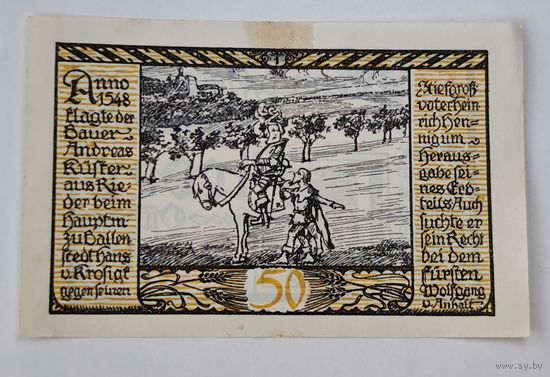 Anno
1548
klagte der
Bauer
Andreas
Küster
aus Rie-
der beim
Hauptm.
zu Ballen
stedt Hans
v. Krosigk
gegen seinen
Stiefgroß-
vater Hein-
rich Hen-
nig um
Heraus-
gabe sei-
nes Erb-
teils Auch
suchte er
sein Recht
bei dem
Fürsten
Wolfgang
v. Anhalt.
50
www.ay.by